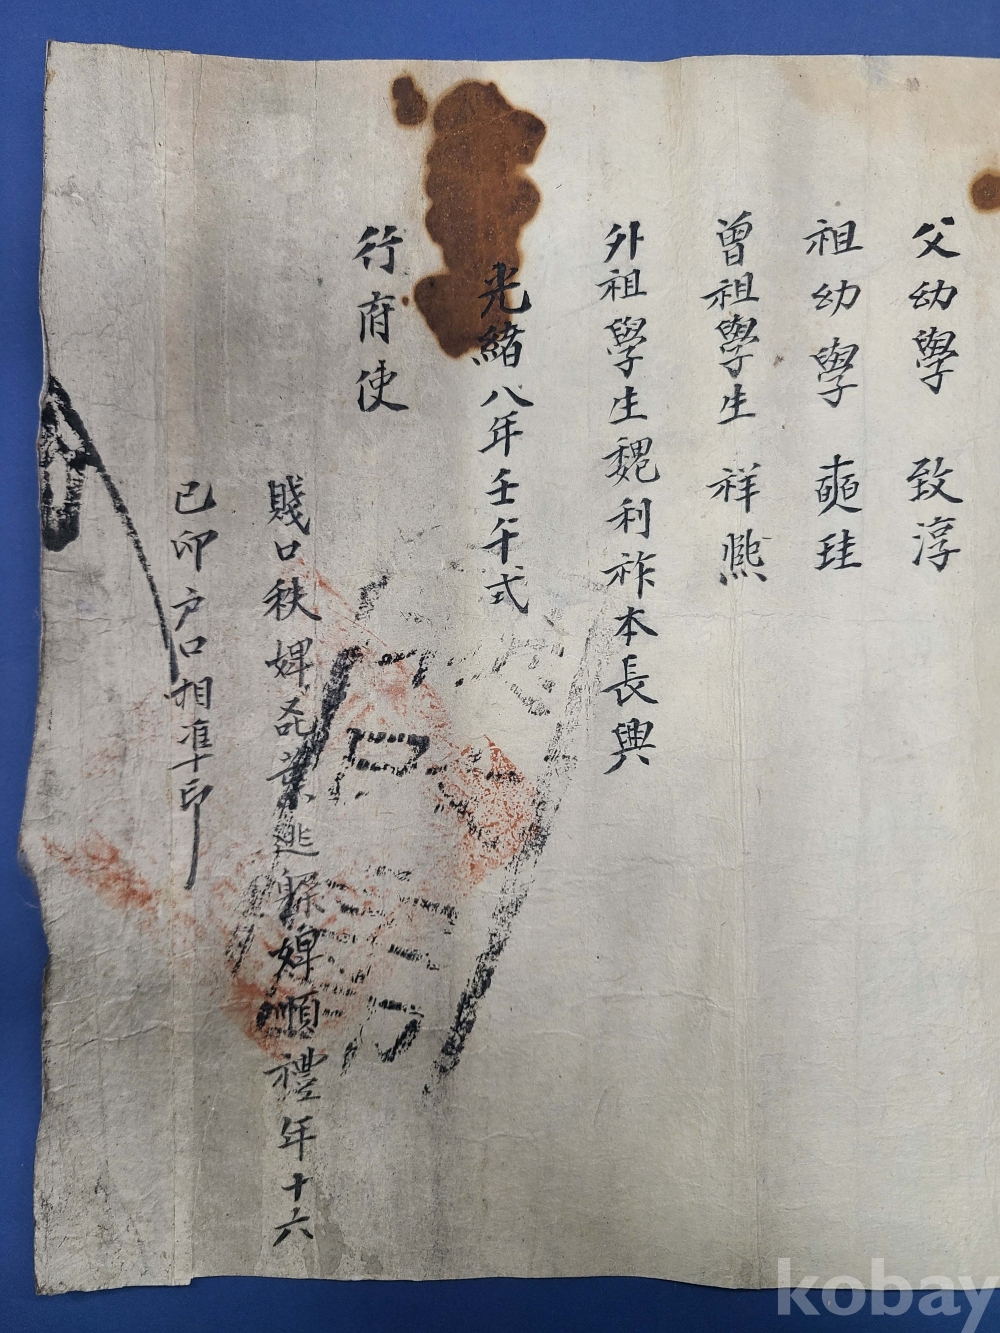 父幼學 致淳
祖幼學 奭珪
曾祖學生 祥熙
外祖學生魏利祚本長興
光緖八年壬午式
行府使
賤口秩婢 葉逃 婢順禮年十六
己卯戶口相准印
kobay